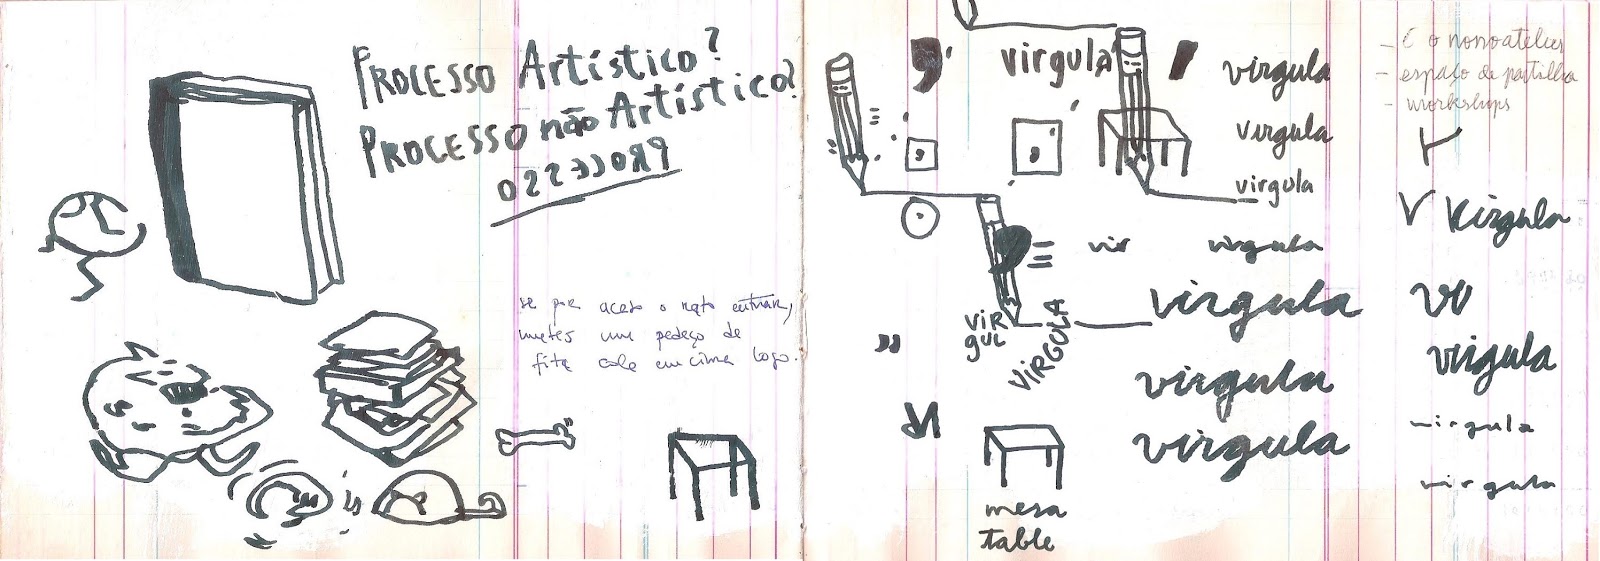 PROCESSO Artístico?
PROCESSO não Artístico?
PROCESSO
se por acaso o rato entrar,
metes um pedaço de
fita cola em cima logo.
virgula
virgula
virgula
virgula
vir virgula
virgula
VIR
gUL
VIRGULA
virgula
virgula
mesa
table
- É o nonoatelier
- espaço de partilha
- workshops
V Virgula
vo
virgula
virgula
virgula